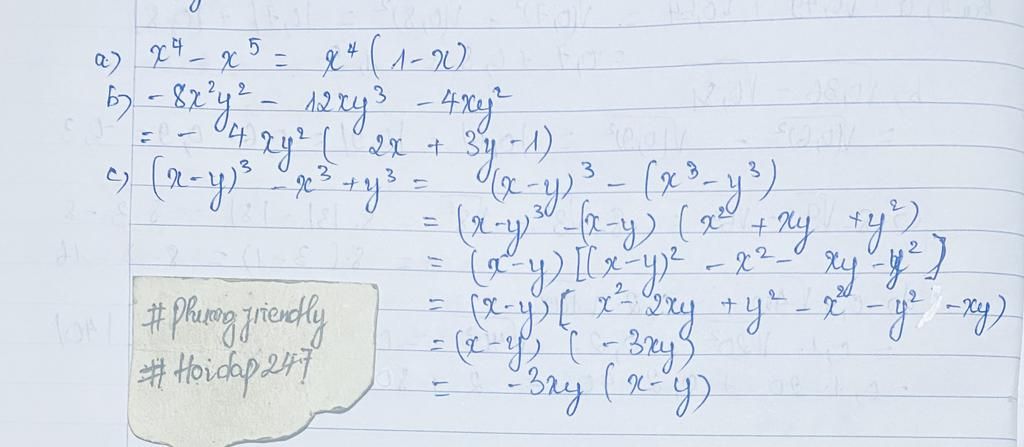 a) x⁴ - x⁵ = x⁴ (1-x)
b) -8x²y² - 12xy³ - 4xy²
= - 4xy² ( 2x + 3y - 1)
c) (x-y)³ - x³ + y³ = (x-y)³ - (x³ - y³)
= (x-y)³ - (x-y) (x² + xy + y²)
= (x-y) [(x-y)² - x² - xy - y²]
= (x-y) [ x² - 2xy + y² - x² - y² - xy)
= (x-y) ( - 3xy)
= -3xy (x-y)
# Phuong friendly
# Hoidap247